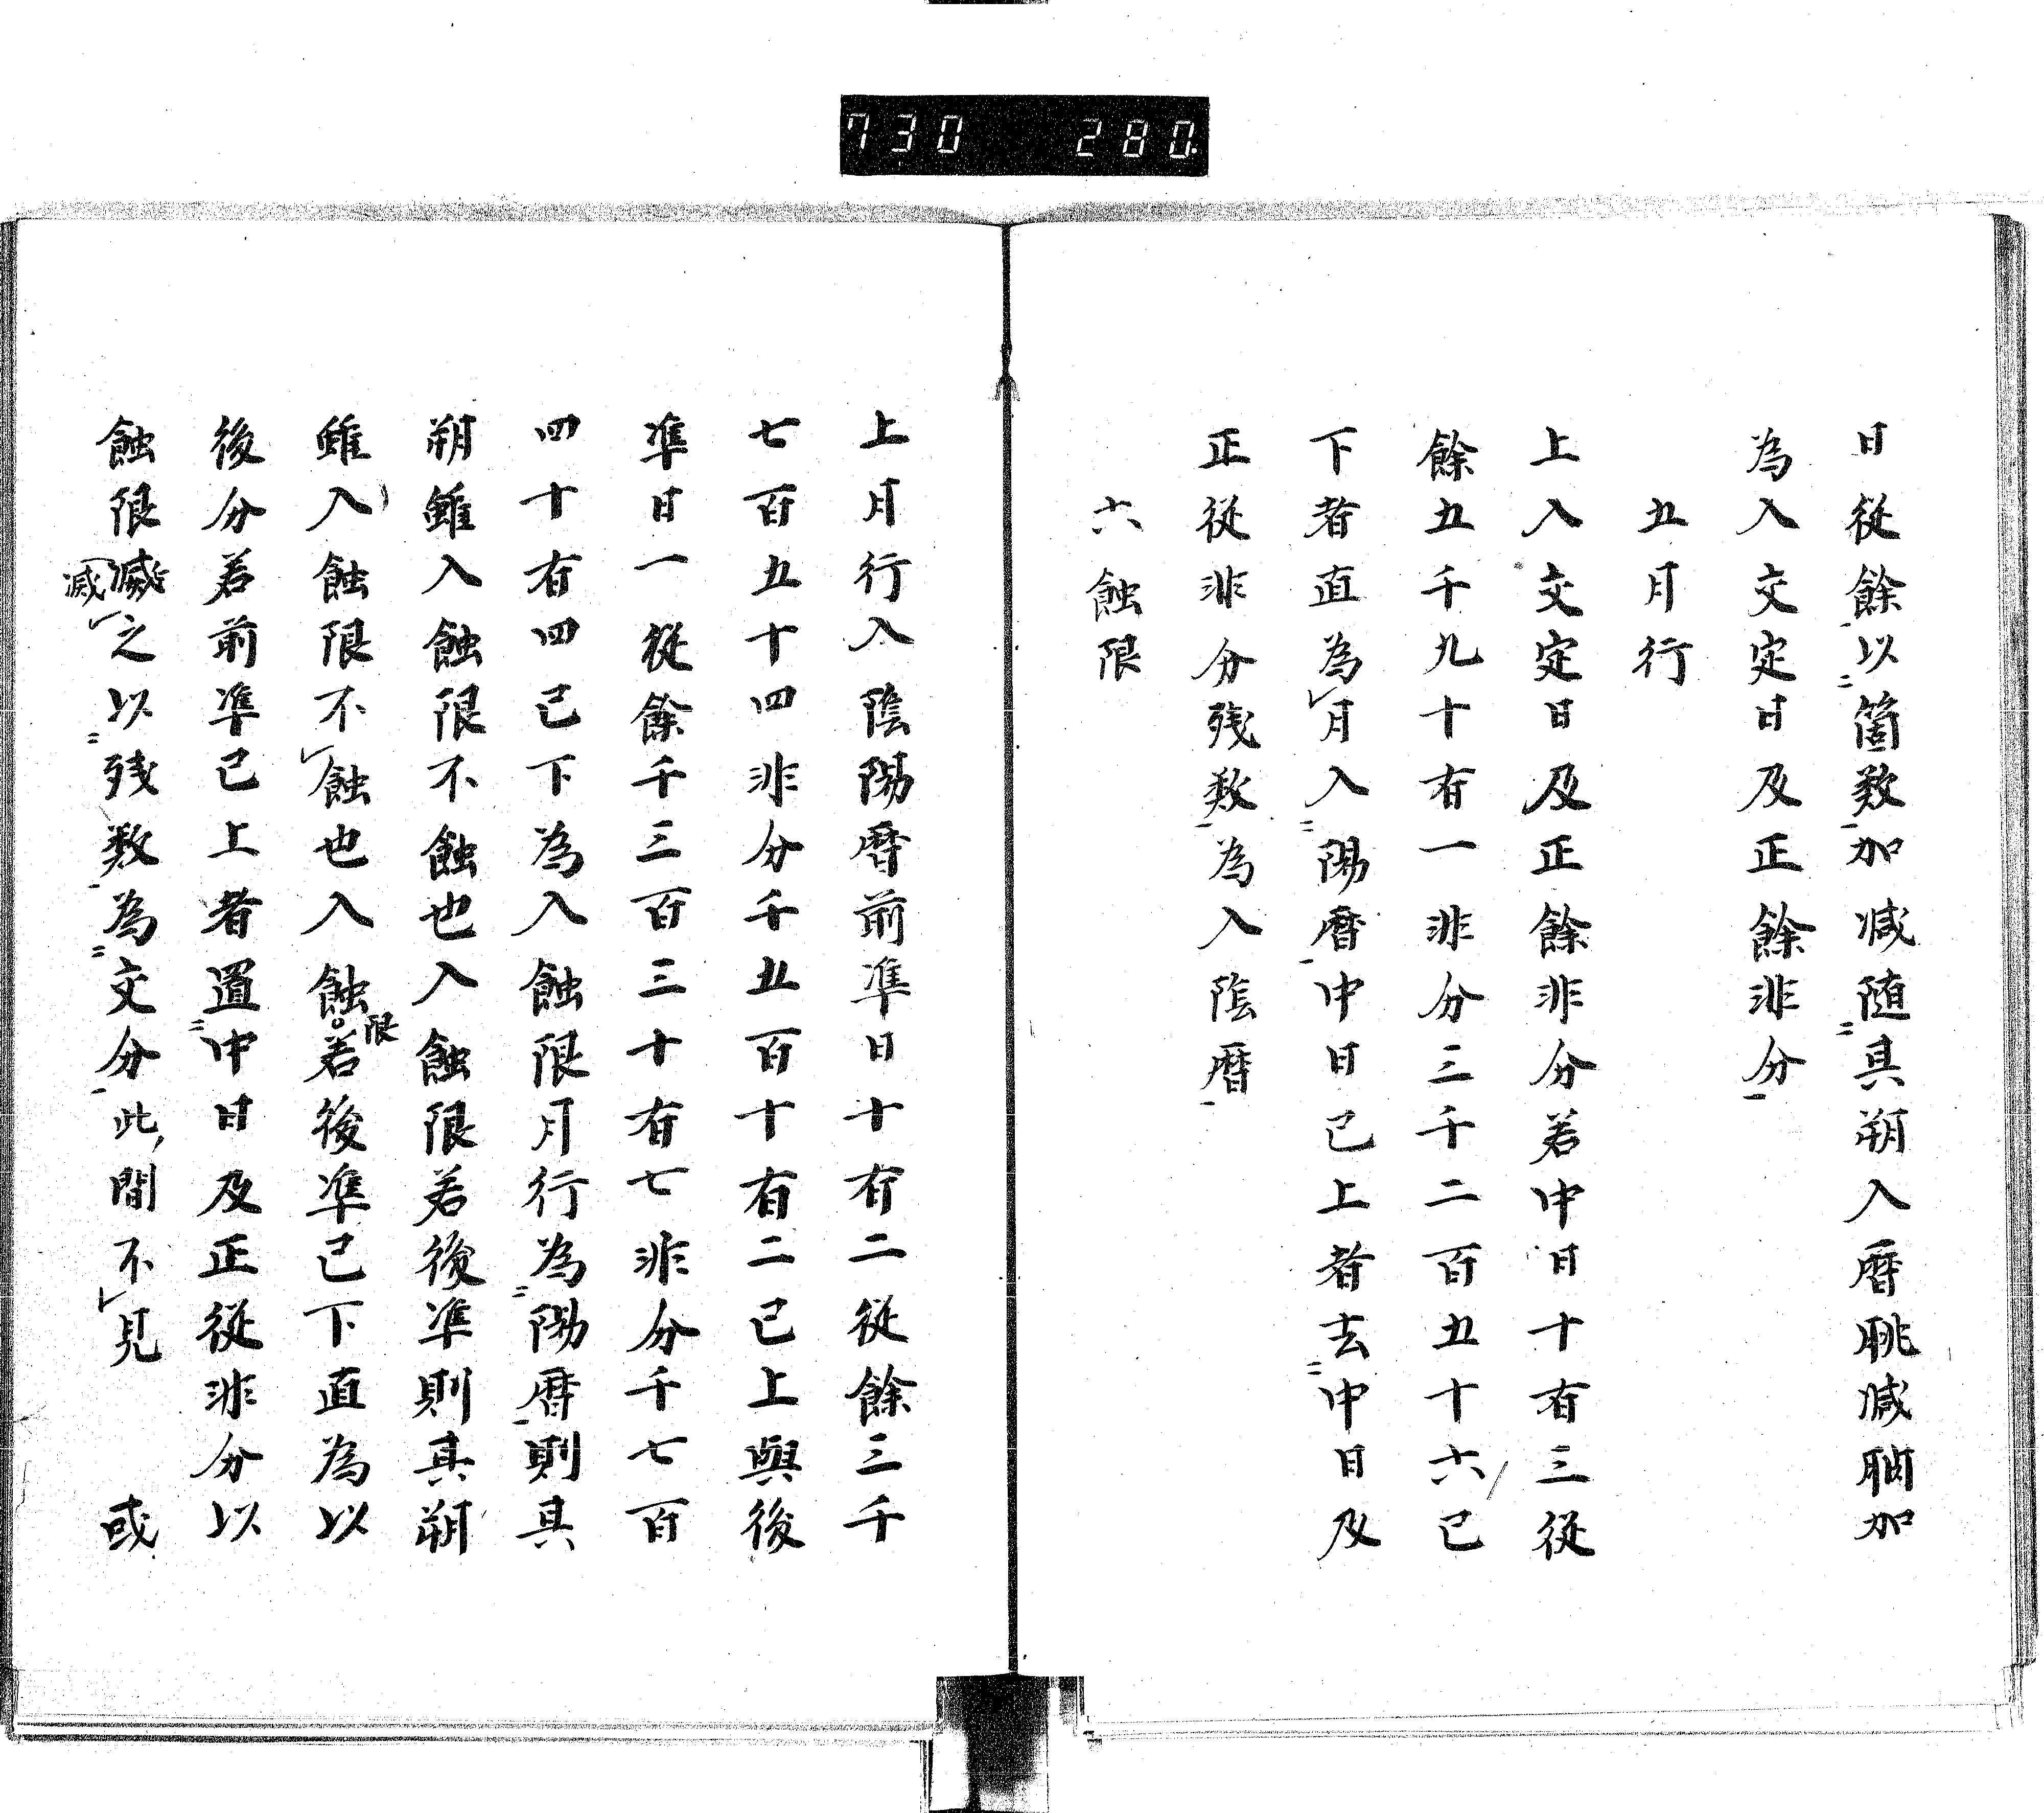 730 280
日從餘以箇数加减随其朔入暦朓减朒加
為入交定日及正餘非分
五月行
上入交定日及正餘非分若中日十有三従
餘五千九十有一非分三千二百五十六已
下者直為月入陽暦中日已上者去中日及
正従非分残数為入陰暦
六蝕限
上月行入陰陽暦前準日十有二従餘三千
七百五十四非分千五百十有二已上與後
準日一従餘千三百三十有七非分千七百
四十有四已下為入蝕限月行為陽暦則其
朔雖入蝕限不蝕也入蝕限若後準則其朔
雖入蝕限不蝕也入蝕限若後準已下直為以
後分若前準已上者置中日及正従非分以
蝕限减之以残数為交分此間不見 或
减